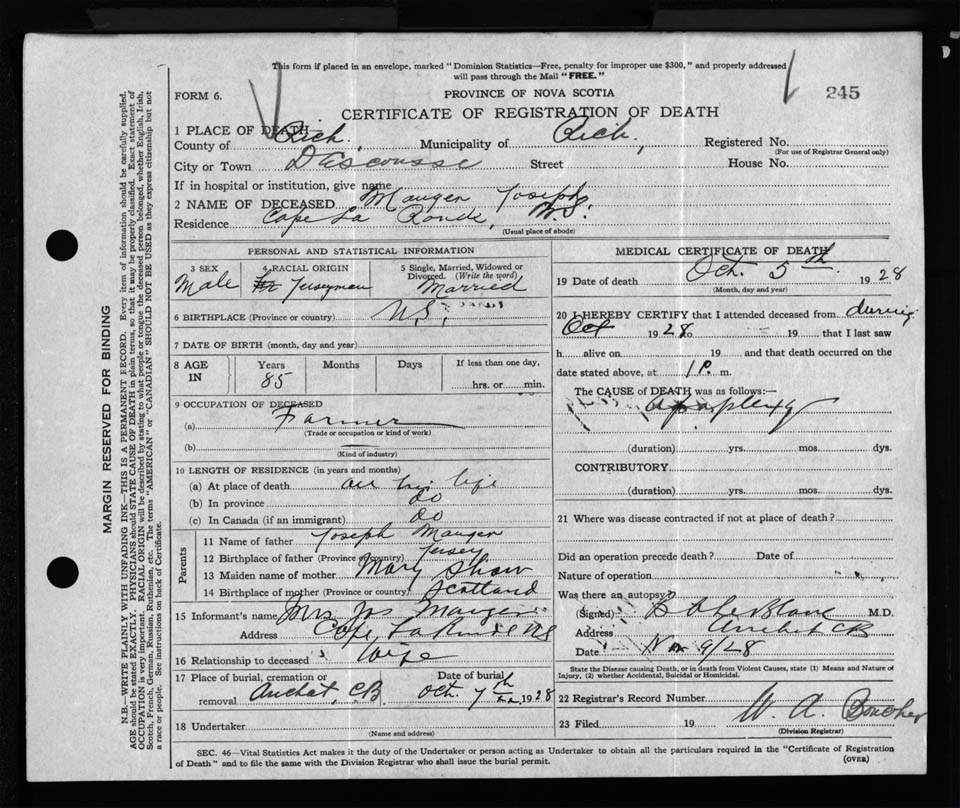 This form if placed in an envelope, marked "Dominion Statistics—Free, penalty for improper use $300," and properly addressed
will pass through the Mail "FREE."
FORM 6.
PROVINCE OF NOVA SCOTIA
245
CERTIFICATE OF REGISTRATION OF DEATH
1 PLACE OF DEATH
County of Rich, Municipality of Rich, Registered No.
(For use of Registrar General only)
City or Town D'Escousse Street House No.
If in hospital or institution, give name
2 NAME OF DECEASED Mauger Joseph
Residence Cape La Ronde, N.S.
(Usual place of abode)
PERSONAL AND STATISTICAL INFORMATION
3 SEX Male
4 RACIAL ORIGIN Jerseyman
5 Single, Married, Widowed or Divorced. (Write the word) Married
6 BIRTHPLACE (Province or country) N.S.
7 DATE OF BIRTH (month, day and year)
8 AGE IN Years 85 Months Days If less than one day, hrs. or min.
9 OCCUPATION OF DECEASED
(a) Farmer
(Trade or occupation or kind of work)
(b)
(Kind of industry)
10 LENGTH OF RESIDENCE (in years and months)
(a) At place of death all his life
(b) In province do
(c) In Canada (if an immigrant) do
Parents
11 Name of father Joseph Mauger
12 Birthplace of father (Province or country) Jersey
13 Maiden name of mother Mary Shaw
14 Birthplace of mother (Province or country) Scotland
15 Informant's name Mrs Jos Mauger
Address Cape La Ronde NS
16 Relationship to deceased Wife
17 Place of burial, cremation or removal Arichat, C.B. Date of burial Oct. 7th 1928
18 Undertaker
(Name and address)
MEDICAL CERTIFICATE OF DEATH
19 Date of death Oct. 5th 1928
(Month, day and year)
20 I HEREBY CERTIFY that I attended deceased from during
Oct 1928 to 19 that I last saw
h alive on 19 and that death occurred on the
date stated above, at 1 P. m.
The CAUSE of DEATH was as follows:—
apoplexy
(duration) yrs. mos. dys.
CONTRIBUTORY
(duration) yrs. mos. dys.
21 Where was disease contracted if not at place of death?
Did an operation precede death? Date of
Nature of operation
Was there an autopsy?
(Signed) M.D.
Address Arichat CB
Date Nov 9/28
State the Disease causing Death, or in death from Violent Causes, state (1) Means and Nature of
Injury, (2) whether Accidental, Suicidal or Homicidal.
22 Registrar's Record Number
23 Filed 19 W. A. Boucher
(Division Registrar)
SEC. 46—Vital Statistics Act makes it the duty of the Undertaker or person acting as Undertaker to obtain all the particulars required in the "Certificate of Registration
of Death" and to file the same with the Division Registrar who shall issue the burial permit.
(OVER)
MARGIN RESERVED FOR BINDING
N.B.—WRITE PLAINLY WITH UNFADING INK—THIS IS A PERMANENT RECORD. Every item of information should be carefully supplied.
AGE should be stated EXACTLY. PHYSICIANS should STATE CAUSE OF DEATH in plain terms, so that it may be properly classified. Exact statement of
OCCUPATION is very important. RACIAL ORIGIN will be described by stating to what people or tongue the deceased person belonged, whether English, Irish,
Scotch, French, German, Russian, Ruthenian, etc. The terms "AMERICAN" or "CANADIAN" SHOULD NOT BE USED as they express citizenship but not
a race or people. See instructions on back of Certificate.